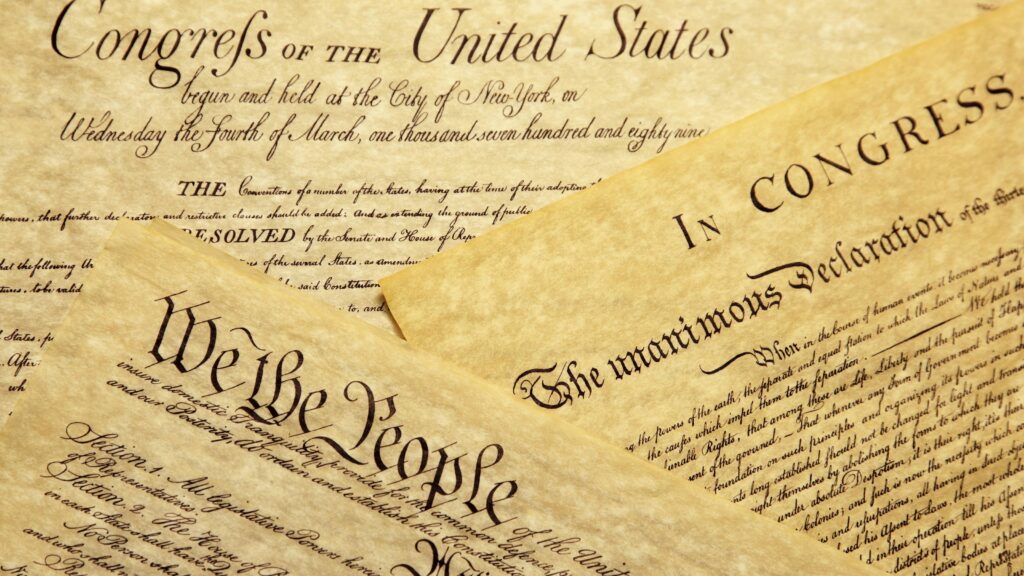 Congreſs OF THE United States
begun and held at the City of New-York, on
Wednesday the fourth of March, one thousand seven hundred and eighty nine
THE Conventions of a number of the States, having at the time of their adopting
powers, that further and restrictive clauses should be added: And as extending the ground of public
RESOLVED by the Senate and House of Rep
that the following
of the several States, as amendm
tures, to be valid
said Constitution
to, and
We the People of the Unit
insure domestic Tranquility, provide for the common defence, pr
and our Posterity, do ordain and establish this Constitution
Section. 1. All legislative Powers here
of Representatives.
Section. 2. The House of
in each State
No Person
and who
IN CONGRESS,
The unanimous Declaration of the thirte
When in the Course of human events, it becomes necessary
the powers of the earth, the separate and equal station to which the Laws of Nature and
the causes which impel them to the separation. We hold the
unalienable Rights, that among these are Life, Liberty and the pursuit of Happ
of the governed, — That whenever any Form of Government becomes
foundation on such principles and organizing its powers in such form
long established should not be changed for light and trans
themselves by abolishing the forms to which they
under absolute Despotism, it is their right, it is their
Colonies; and such is now the necessity which co
and usurpations, all having in direct object
his Assent to Laws, the most
in their operation till his Assent
districts of people, unless
legislative bodies at places